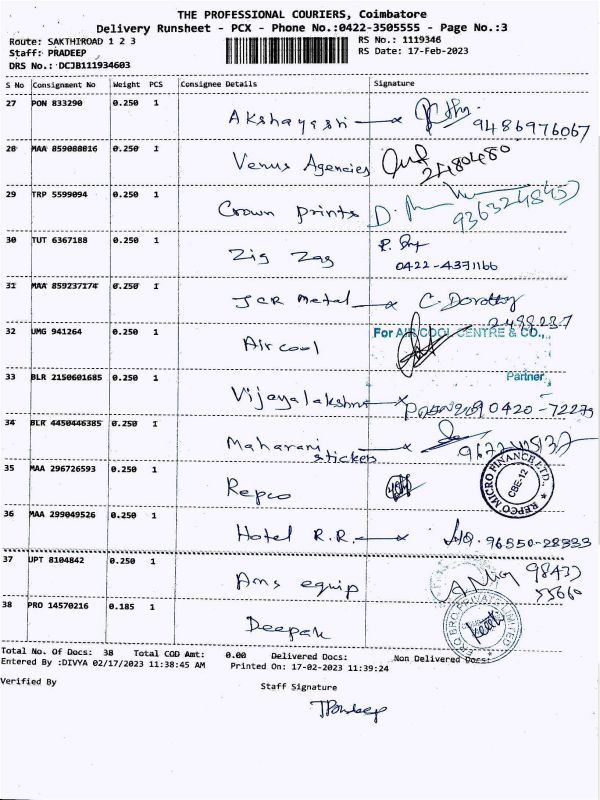 THE PROFESSIONAL COURIERS, Coimbatore
Delivery Runsheet - PCX - Phone No.:0422-3505555 - Page No.:3
Route: SAKTHIROAD 1 2 3
RS No.: 1119346
Staff: PRADEEP
RS Date: 17-Feb-2023
DRS No.: DCJB111934603
S No Consignment No Weight PCS Consignee Details Signature
27 PON 833290 0.250 1 Akshayash 9486976067
28 MAA 859088816 0.250 1 Venus Agencies 2480480
29 TRP 5599094 0.250 1 Crown prints D.
30 TUT 6367188 0.250 1 Zig Zag 0422-4371166
31 MAA 859237174 0.250 1 JCR Metal C. Dorothy
2488237
32 UMG 941264 0.250 1 Aircool For AIR COOL CENTRE & CO.,
Partner
33 BLR 2150601685 0.250 1 Vijayalakshmi 90420-72279
34 BLR 4450446385 0.250 1 Maharani stickers
35 MAA 296726593 0.250 1 Repco REPCO MICRO FINANCE LTD. CBE-12
36 MAA 299049526 0.250 1 Hotel R.R. 96550-28333
37 UPT 8104842 0.250 1 Ams equip 98433
55660
38 PRO 14570216 0.185 1 Deepak
Total No. Of Docs: 38 Total COD Amt: 0.00 Delivered Docs: Non Delivered Docs:
Entered By :DIVYA 02/17/2023 11:38:45 AM Printed On: 17-02-2023 11:39:24
Verified By
Staff Signature